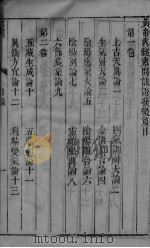 黃帝內經素問註證發微篇目
第一卷
上古天真論一 四氣調神大論二
生氣通天論三 金匱真言論四
陰陽應象大論五 陰陽離合論六
陰陽別論七 靈蘭秘典論八
六節藏象論九
第二卷
五藏生成論十 五藏別論十一
異法方宜論十二 移精變氣論十三